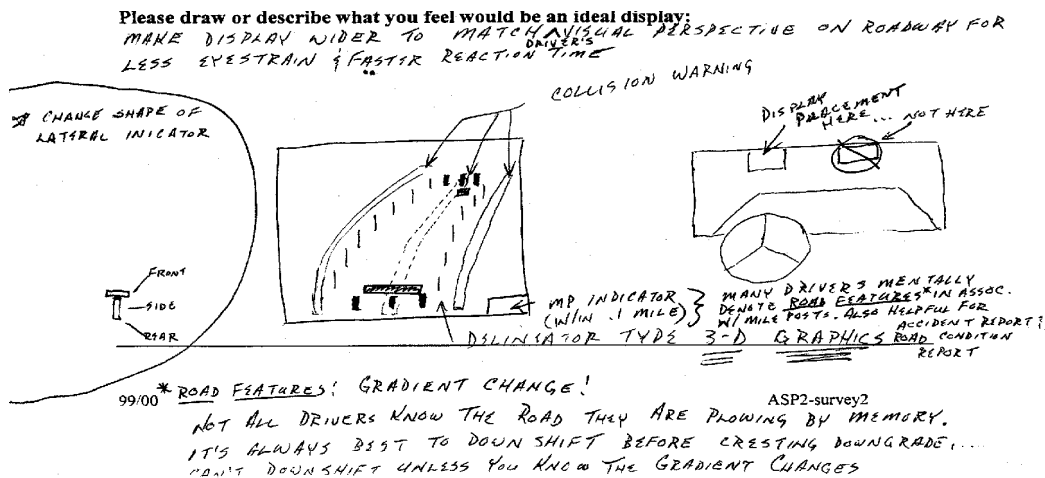 Please draw or describe what you feel would be an ideal display:
MAKE DISPLAY WIDER TO MATCH DRIVER'S VISUAL PERSPECTIVE ON ROADWAY FOR
LESS EYESTRAIN & FASTER REACTION TIME
COLLISION WARNING
* CHANGE SHAPE OF
LATERAL INICATOR
DISPLAY
PLACEMENT
HERE... NOT HERE
FRONT
SIDE
REAR
MP INDICATOR
(W/IN .1 MILE)
MANY DRIVERS MENTALLY
DENOTE ROAD FEATURES* IN ASSOC.
W/ MILE POSTS. ALSO HELPFUL FOR
ACCIDENT REPORT &
ROAD CONDITION
REPORT
DELINEATOR TYPE 3-D GRAPHICS
* ROAD FEATURES: GRADIENT CHANGE!
99/00
ASP2-survey2
NOT ALL DRIVERS KNOW THE ROAD THEY ARE PLOWING BY MEMORY.
IT'S ALWAYS BEST TO DOWN SHIFT BEFORE CRESTING DOWNGRADE....
CAN'T DOWNSHIFT UNLESS YOU KNOW THE GRADIENT CHANGES